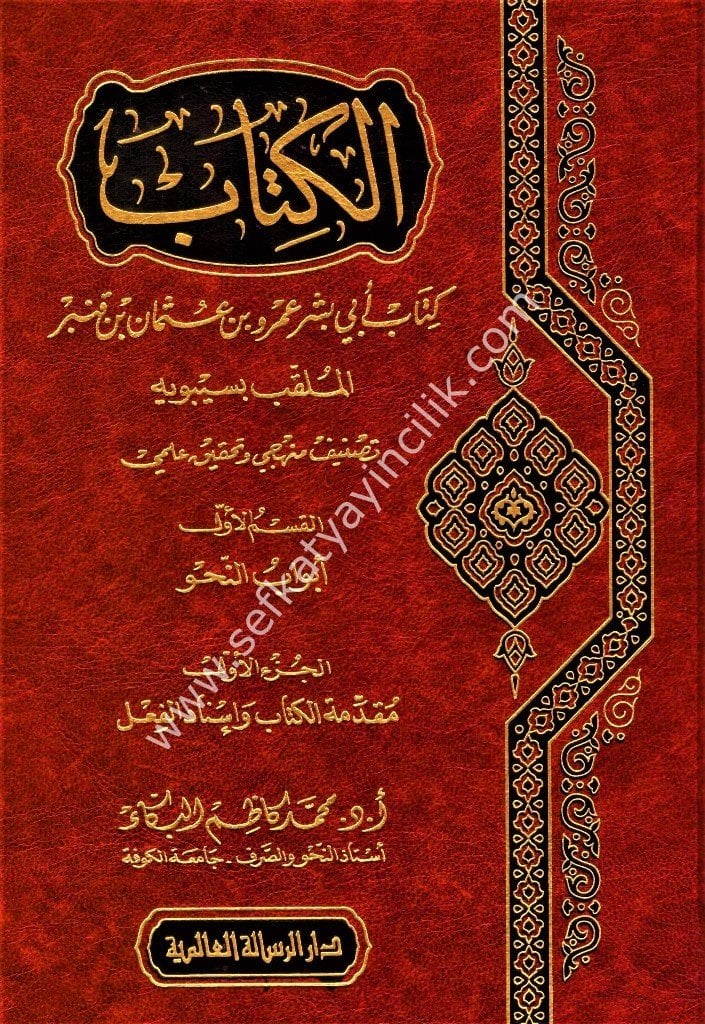 الكِتَاب
كِتَاب أبي بشر عمرو بن عُثمان بن قنبر
المُلقّب بسيبويه
تصنيف منهجي وتحقيق علمي
القسم الأوّل
أبوابُ النّحو
الجُزء الأوّل
مُقدّمة الكتاب وَإسناد الفعل
أ.د. محمّد كاظم البكّاء
أستاذ النّحو والصّرف - جامعة الكوفة
دار الرسالة العالمية
www.sefkatyayincilik.com